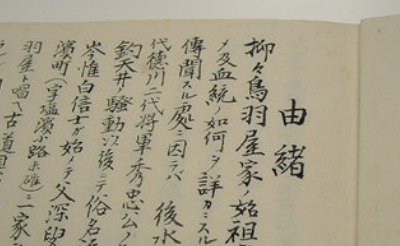 由緒
抑々鳥羽屋家ノ始祖
メ及血統ノ如何ヲ詳カニスル
傳聞スル處ニ因ラバ 後水
代徳川二代将軍秀忠公ノ
釣天井ノ騒動次後ニテ俗名
岺惟白信士ガ始メテ父深
濱町(字塩濱小路未確)ニ一家
羽屋ト唱ヘ古道